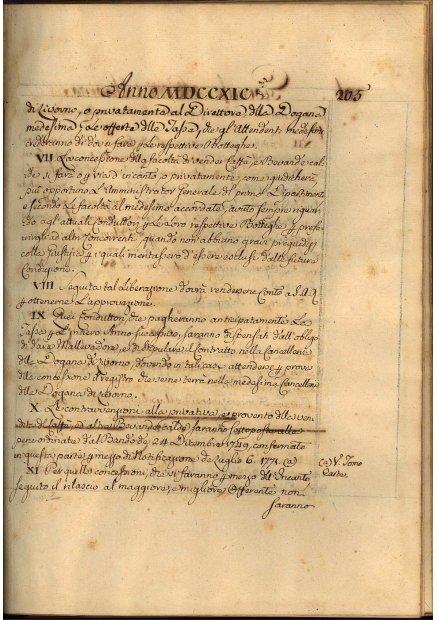 Anno MDCCXCI
205
di Livorno, o privatamente al Direttore dlla Dogana
medesima p le offerte dlle Tasse, che gl'Attendenti
crederanno di dover fare p le respettive Botteghe.
VII La concessione dlla facoltà di vender Caffè, e Bevande cal-
de si farà o p via d'incanto, o privatamente, come giudicherà
più opportuno l'Amministrator Generale dl primo Dipartimento
e secondo le facoltà al medesimo accordate, avuto sempre riguar-
do agl'attuali Conduttori p le loro respettive Botteghe p prefe-
rirgli ad altri Concorrenti, quando non abbiano gravi pregiudizj
colla Giustizia p i quali meritassero d'essere esclusi dalla futura
Conduzione.
VIII Seguita tal Liberazione dovrà rendersene Conto a S.A.R.
p ottenerne l'approvazione.
IX Quei Conduttori, che pagheranno anticipatamente La
Tassa p l'intiero Anno successivo, saranno dispensati dall'obbligo
di dare Mallevadore, e di stipulare il Contratto nella Cancelleria
dlla Dogana di Livorno, dovendo in tal caso attendersi p prova
dlla concessione il registro che se ne terrà nella medesima Cancelleria
dlla Dogana di Livorno.
X Le contravvenzioni alla privativa, e provento dlla ven-
dita dl Caffè, ed altre Bevande calde saranno sottoposte alle
pene ordinate dal Bando de 24 Dicembre 1749, confermate
in questa parte p mezzo di Notificazione de Luglio 6. 1771. (a)
(a) V. Tomo
Carte
XI Per quelle concessioni, che si faranno p mezzo dell'Incanto
seguito il rilascio al maggiore, e migliore Offerente non
saranno